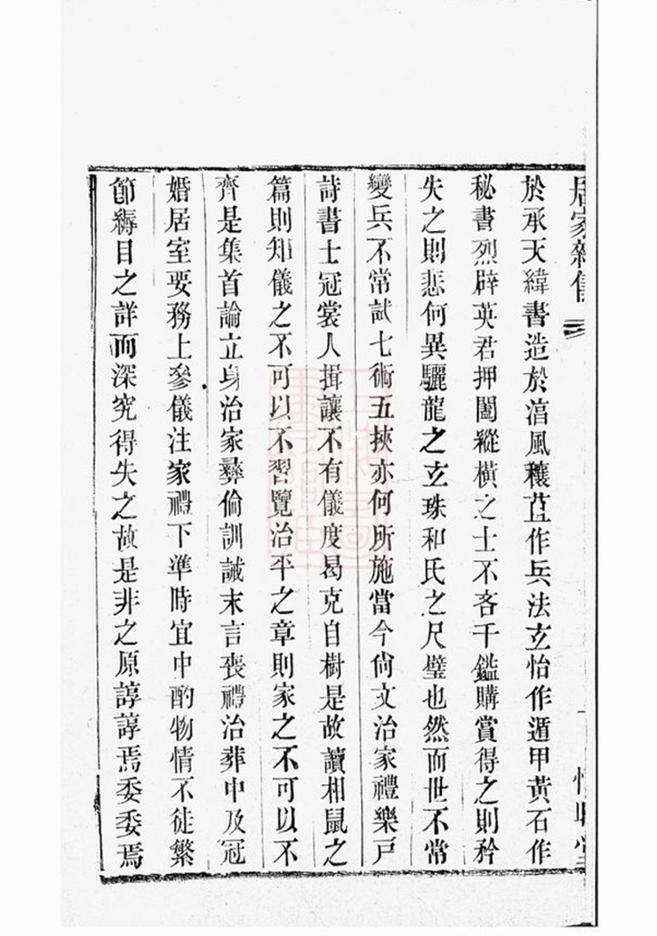 居家雜儀 二
於承天緯書造於湻風穰苴作兵法玄怡作遁甲黃石作
秘書烈辟英君押闔縱橫之士不吝千鎰購賞得之則矜
失之則悲何異驪龍之玄珠和氏之尺璧也然而世不常
變兵不常試七術五挾亦何所施當今尙文治家禮樂戸
詩書士冠裳人揖讓不有儀度曷克自樹是故讀相鼠之
篇則知儀之不可以不習覽治平之章則家之不可以不
齊是集首論立身治家彝倫訓誡末言喪禮治葬中及冠
婚居室要務上叅儀注家禮下準時宜中酌物情不徒繁
節縟目之詳而深究得失之故是非之原諄諄焉委委焉